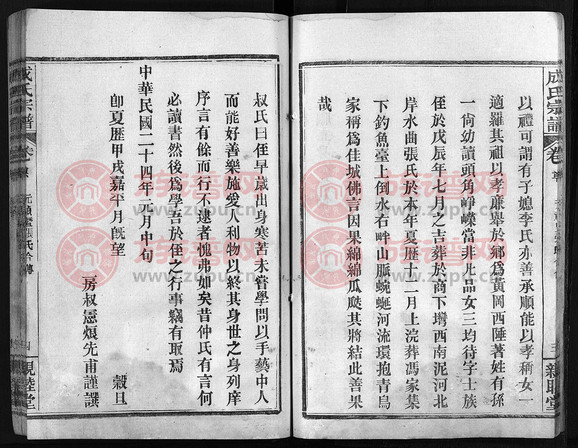 成氏宗譜
卷寧
親睦堂
以禮可謂有子媳李氏亦善承順能以孝稱女一
適羅其祖以孝廉舉於鄉爲黃岡西陲著姓有孫
一尙幼讀頭角崢嶸當非凡品女三均待字士族
侄於戊辰年七月之吉葬於商下壪西南泥河北
岸水曲張氏於本年夏歷十二月上浣葬馮家集
下釣魚臺上倒水右畔山脈蜿蜒河流環抱青烏
家稱爲佳城佛言因果綿綿瓜瓞其將結此善果
哉
叔氏曰侄早歲出身寒苦未嘗學問以手藝中人
而能好善樂施愛人利物以終其身世之列庠
序言有餘而行不逮者愧弗如矣昔仲氏有言何
必讀書然後爲學吾於侄之行事竊有取焉
中華民國二十四年元月中旬
卽夏歷甲戌嘉平月旣望 穀旦
房叔 先甫謹譔
成氏宗譜
卷寧
四
親睦堂